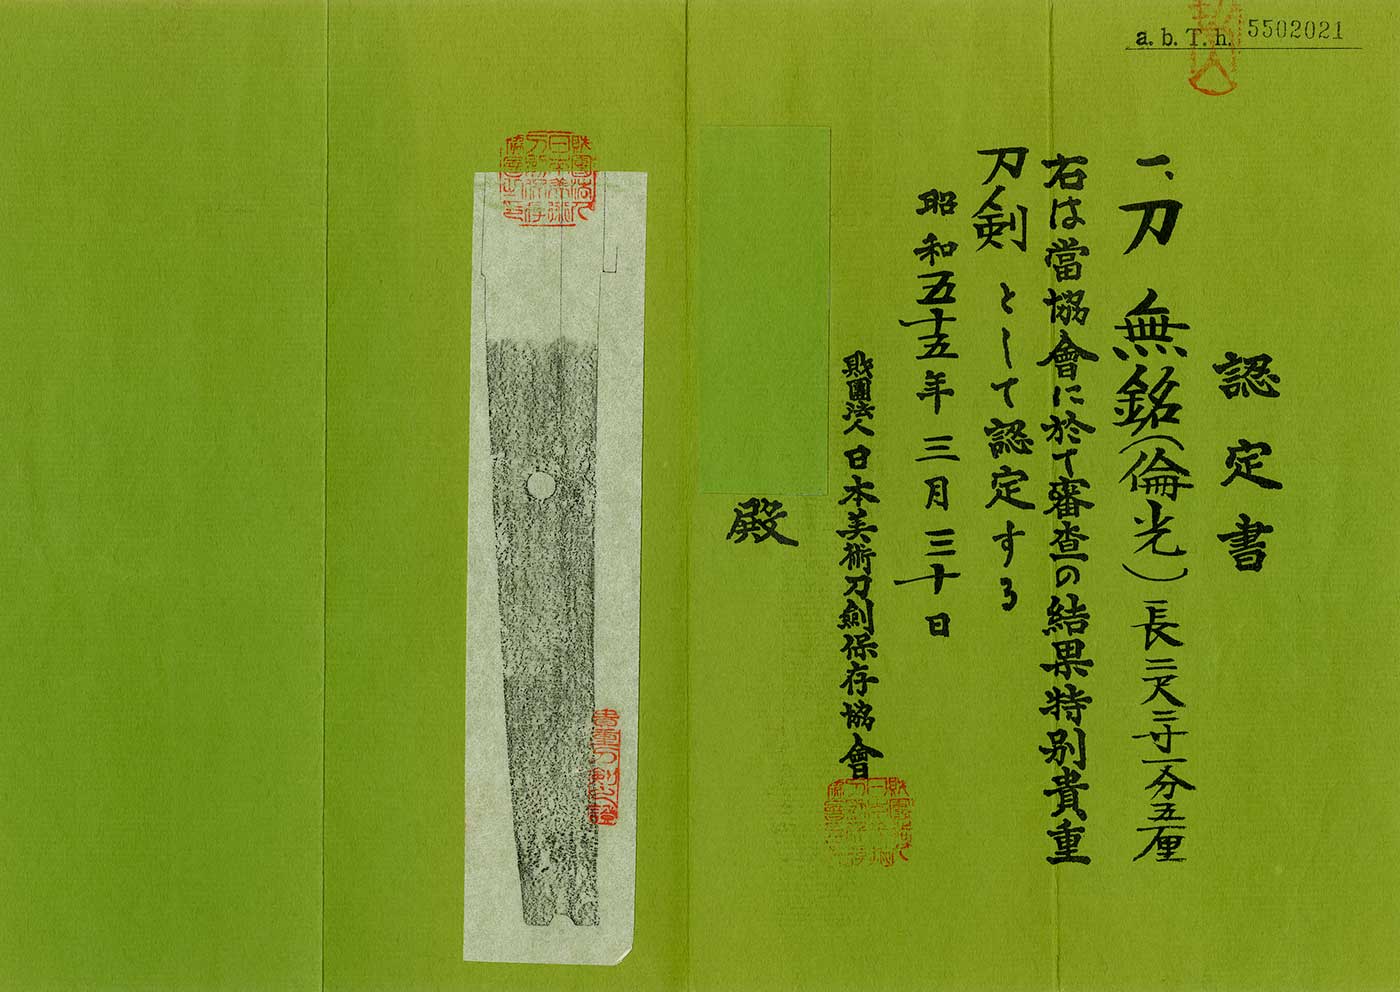 a. b. T. h. 5502021
認定書
一、刀 無銘(倫光)長二尺三寸一分五厘
右は當協會に於て審査の結果特別貴重
刀剣として認定する
昭和五十五年三月三十日
財團法人日本美術刀剣保存協會
殿
財團法人日本美術刀剣保存協會之印
貴重刀剣之證